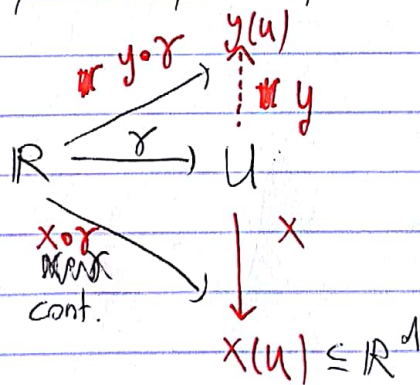 y(U)
y∘γ
y
γ
ℝ
U
x∘γ
x
cont.
x(U) ⊆ ℝᵈ